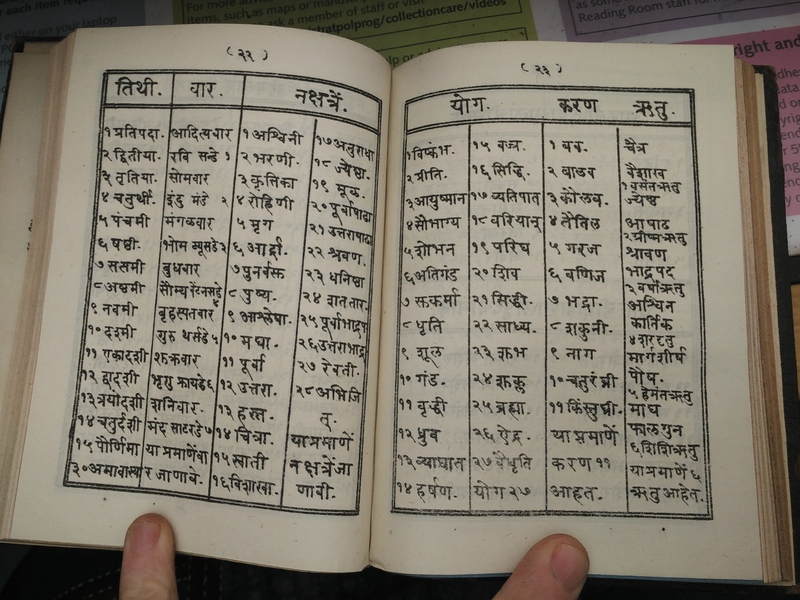 For more
items, such as maps or manu
ask a member of staff or visit
stratpolprog/collectioncare/videos
Reading Room staff for
( २२ )
तिथी. वार. नक्षत्रें.
१ प्रतिपदा. आदित्यवार १ अश्विनी १७ अनुराधा
२ द्वितीया. रवि सन्डे १ २ भरणी. १८ ज्येष्ठा.
३ तृतिया. सोमवार ३ कृत्तिका १९ मूळ.
४ चतुर्थी. इंदु मंडे २ ४ रोहिणी २० पूर्वाषाढा
५ पंचमी मंगळवार ५ मृग २१ उत्तराषाढा
६ षष्ठी. भोम ट्यूसडे ३ ६ आर्द्रा. २२ श्रवण.
७ सप्तमी बुधवार ७ पुनर्वसु २३ धनिष्ठा
८ अष्टमी सौम्य वेंटनसडे ८ पुष्य. २४ शततार.
९ नवमी बृहस्पतवार ९ आश्लेषा. २५ पूर्वाभाद्रप
१० दशमी गुरु थर्सडे ५ १० मघा. २६ उत्तराभाद्र
११ एकादशी शुक्रवार ११ पूर्वा २७ रेवती.
१२ द्वादशी भृगु फ्रायडे ६ १२ उत्तरा. २८ अभिजि
१३ त्रयोदशी शनिवार. १३ हस्त. त्.
१४ चतुर्दशी मंद साटरडे ७ १४ चित्रा. याप्रमाणें
१५ पौर्णिमा याप्रमाणेंवा १५ स्वाती नक्षत्रेंजा
३० अमावास्य र जाणावे. १६ विशाखा. णावी.
( २३ )
योग. करण ऋतु.
१ विष्कंभ. १५ वज्र. १ बव. चैत्र
२ प्रीति. १६ सिद्धि. २ बालव वैशाख
१ वसंतऋतु
३ आयुष्मान १७ व्यतिपात ३ कौलव. ज्येष्ठ
४ सौभाग्य १८ वरियान् ४ तैतिल आषाढ
२ ग्रीष्मऋतु
५ शोभन १९ परिघ ५ गरज श्रावण
६ अतिगंड २० शिव ६ वणिज भाद्रपद
३ वर्षाऋतु
७ सुकर्मा २१ सिद्धी. ७ भद्रा. अश्विन
८ धृति २२ साध्य. ८ शकुनी. कार्तिक
४ शरदृतु
९ शूल २३ शुभ ९ नाग मार्गशीर्ष
१० गंड. २४ शुक्ल १० चतुरंघ्री पौष.
५ हेमंतऋतु
११ वृद्धी २५ ब्रह्मा. ११ किंस्तुघ्नी. माघ
१२ ध्रुव २६ ऐंद्र. याप्रमाणें फालगुन
६ शिशिऋतु
१३ व्याघात २७ वैधृति करण ११ याप्रमाणें ६
१४ हर्षण. योग २७ आहत. ऋतु आहेत.